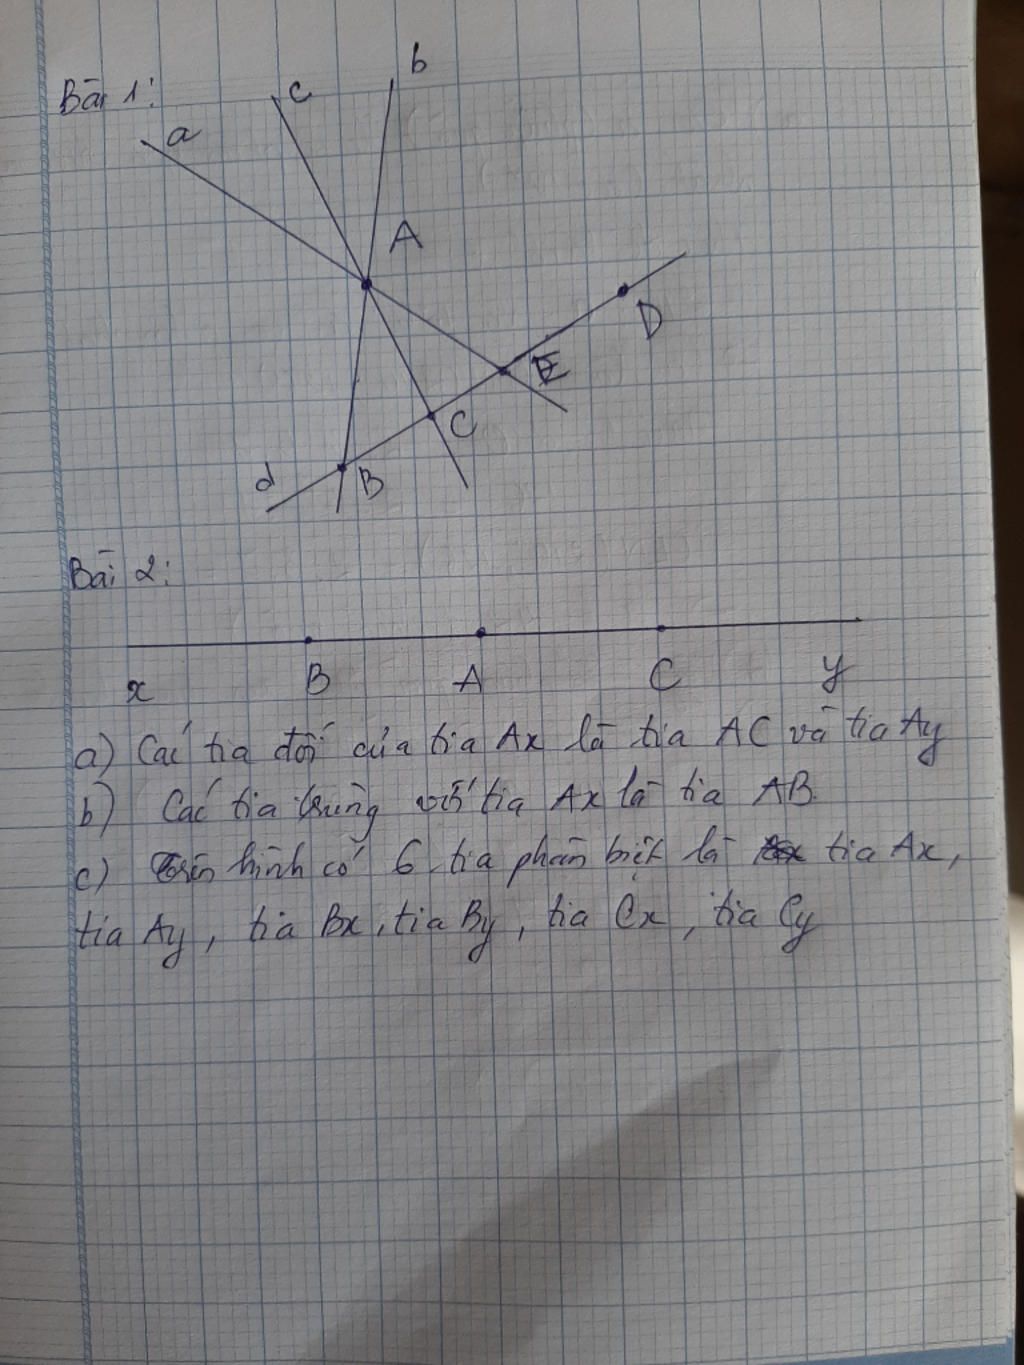 Bài 1:
a
c
b
A
D
E
C
B
d
Bài 2:
x B A C y
a) Các tia đối của tia Ax là tia AC và tia Ay
b) Các tia trùng với tia Ax là tia AB.
c) Trên hình có 6 tia phân biệt là tia Ax,
tia Ay, tia Bx, tia By, tia Cx, tia Cy